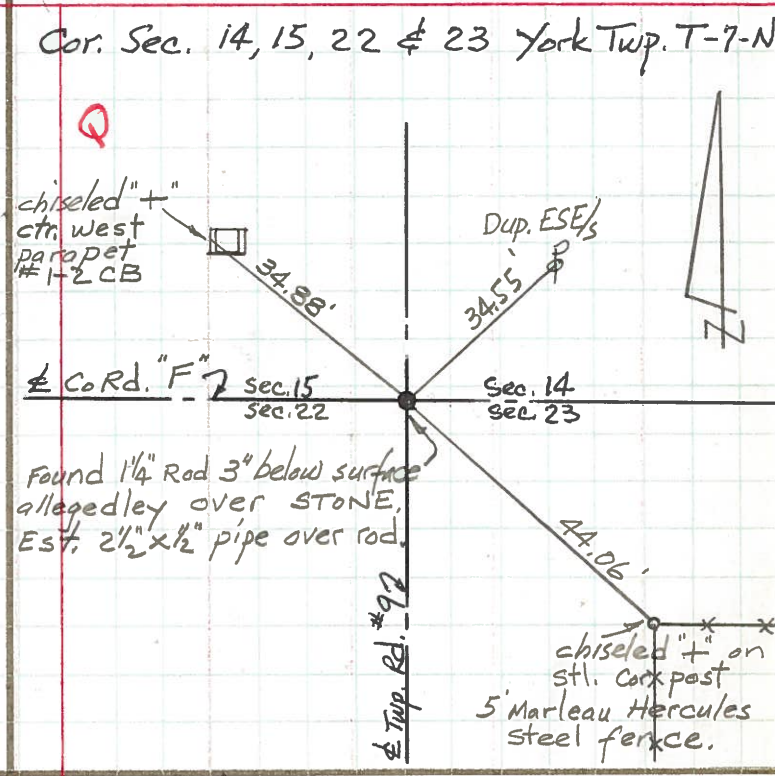 Cor. Sec. 14, 15, 22 & 23 York Twp. T-7-N
Q
chiseled "+"
ctr. west
parapet
# 1-2 CB
34.88'
Dup. ESE/s
34.55'
N
℄ Co Rd. "F"
Sec. 15
Sec. 22
Sec. 14
Sec. 23
Found 1¼" Rod 3" below surface
allegedley over STONE.
Est. 2½" x ½" pipe over rod.
44.06'
℄ Twp. Rd. #9
chiseled "+" on
stl. Cor. post
5' Marleau Hercules
steel fence.